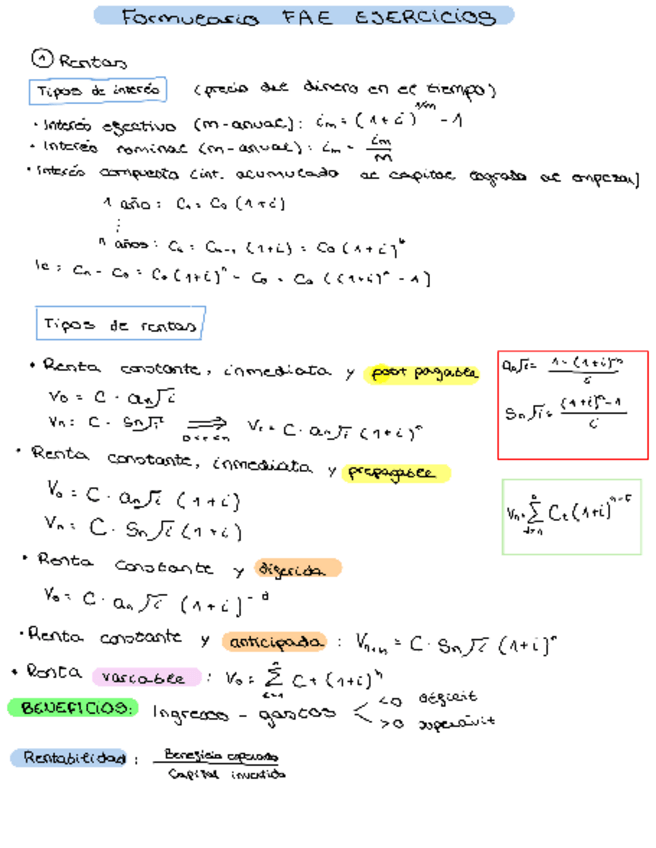 Formulario FAE EJERCICIOS
① Rentas
Tipos de interés (precio del dinero en el tiempo)
· Interés efectivo (m-anual): im = (1+i)^1/m - 1
· Interés nominal (m-anual): im = im/m
· Interés compuesto (int. acumulado al capital al empezar)
1 año: C₁ = C₀ (1+i)
⋮
n años: Cn = Cn-1 (1+i) = C₀ (1+i)^n
Ie = Cn - C₀ = C₀ (1+i)^n - C₀ = C₀ ((1+i)^n - 1)
Tipos de rentas
· Renta constante, inmediata y post pagable
V₀ = C · an⌉i
Vn = C · Sn⌉i ⟹ 0<τ<n Vτ = C · an⌉i (1+i)^τ
an⌉i = 1-(1+i)^-n / i
Sn⌉i = (1+i)^n-1 / i
· Renta constante, inmediata y prepagable
V₀ = C · an⌉i (1+i)
Vn = C · Sn⌉i (1+i)
Vn = Σ Ct (1+i)^n-t
· Renta constante y diferida
V₀ = C · an⌉i (1+i)^-d
· Renta constante y anticipada : Vn+h = C · Sn⌉i (1+i)^h
· Renta variable : V₀ = Σ Ct (1+i)^n
BENEFICIOS: Ingresos - gastos < <0 déficit
>0 superávit
Rentabilidad : Beneficio esperado / Capital invertido